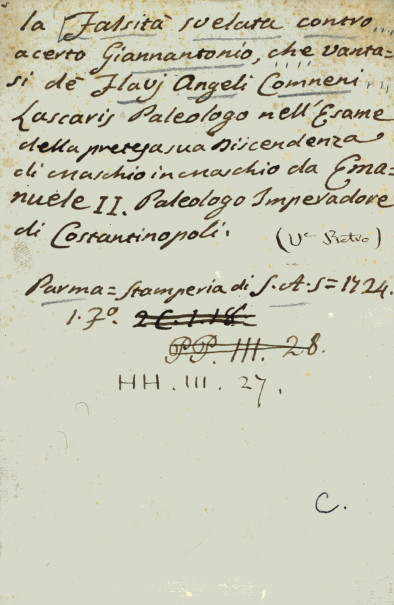 la Falsità svelata contro
acerto Giannantonio, che vanta=
si de Flavj Angeli Comneni
Lascaris Paleologo nell'Esame
della pretesa sua Discendenza
di maschio in maschio da Ema=
nuele II. Paleologo Imperadore
di Costantinopoli.
(Ve Retro)
Parma = Stamperia di S.A.S = 1724.
1. 7º. 2C.1.18.
PP. III. 28.
HH. III. 27.
C.